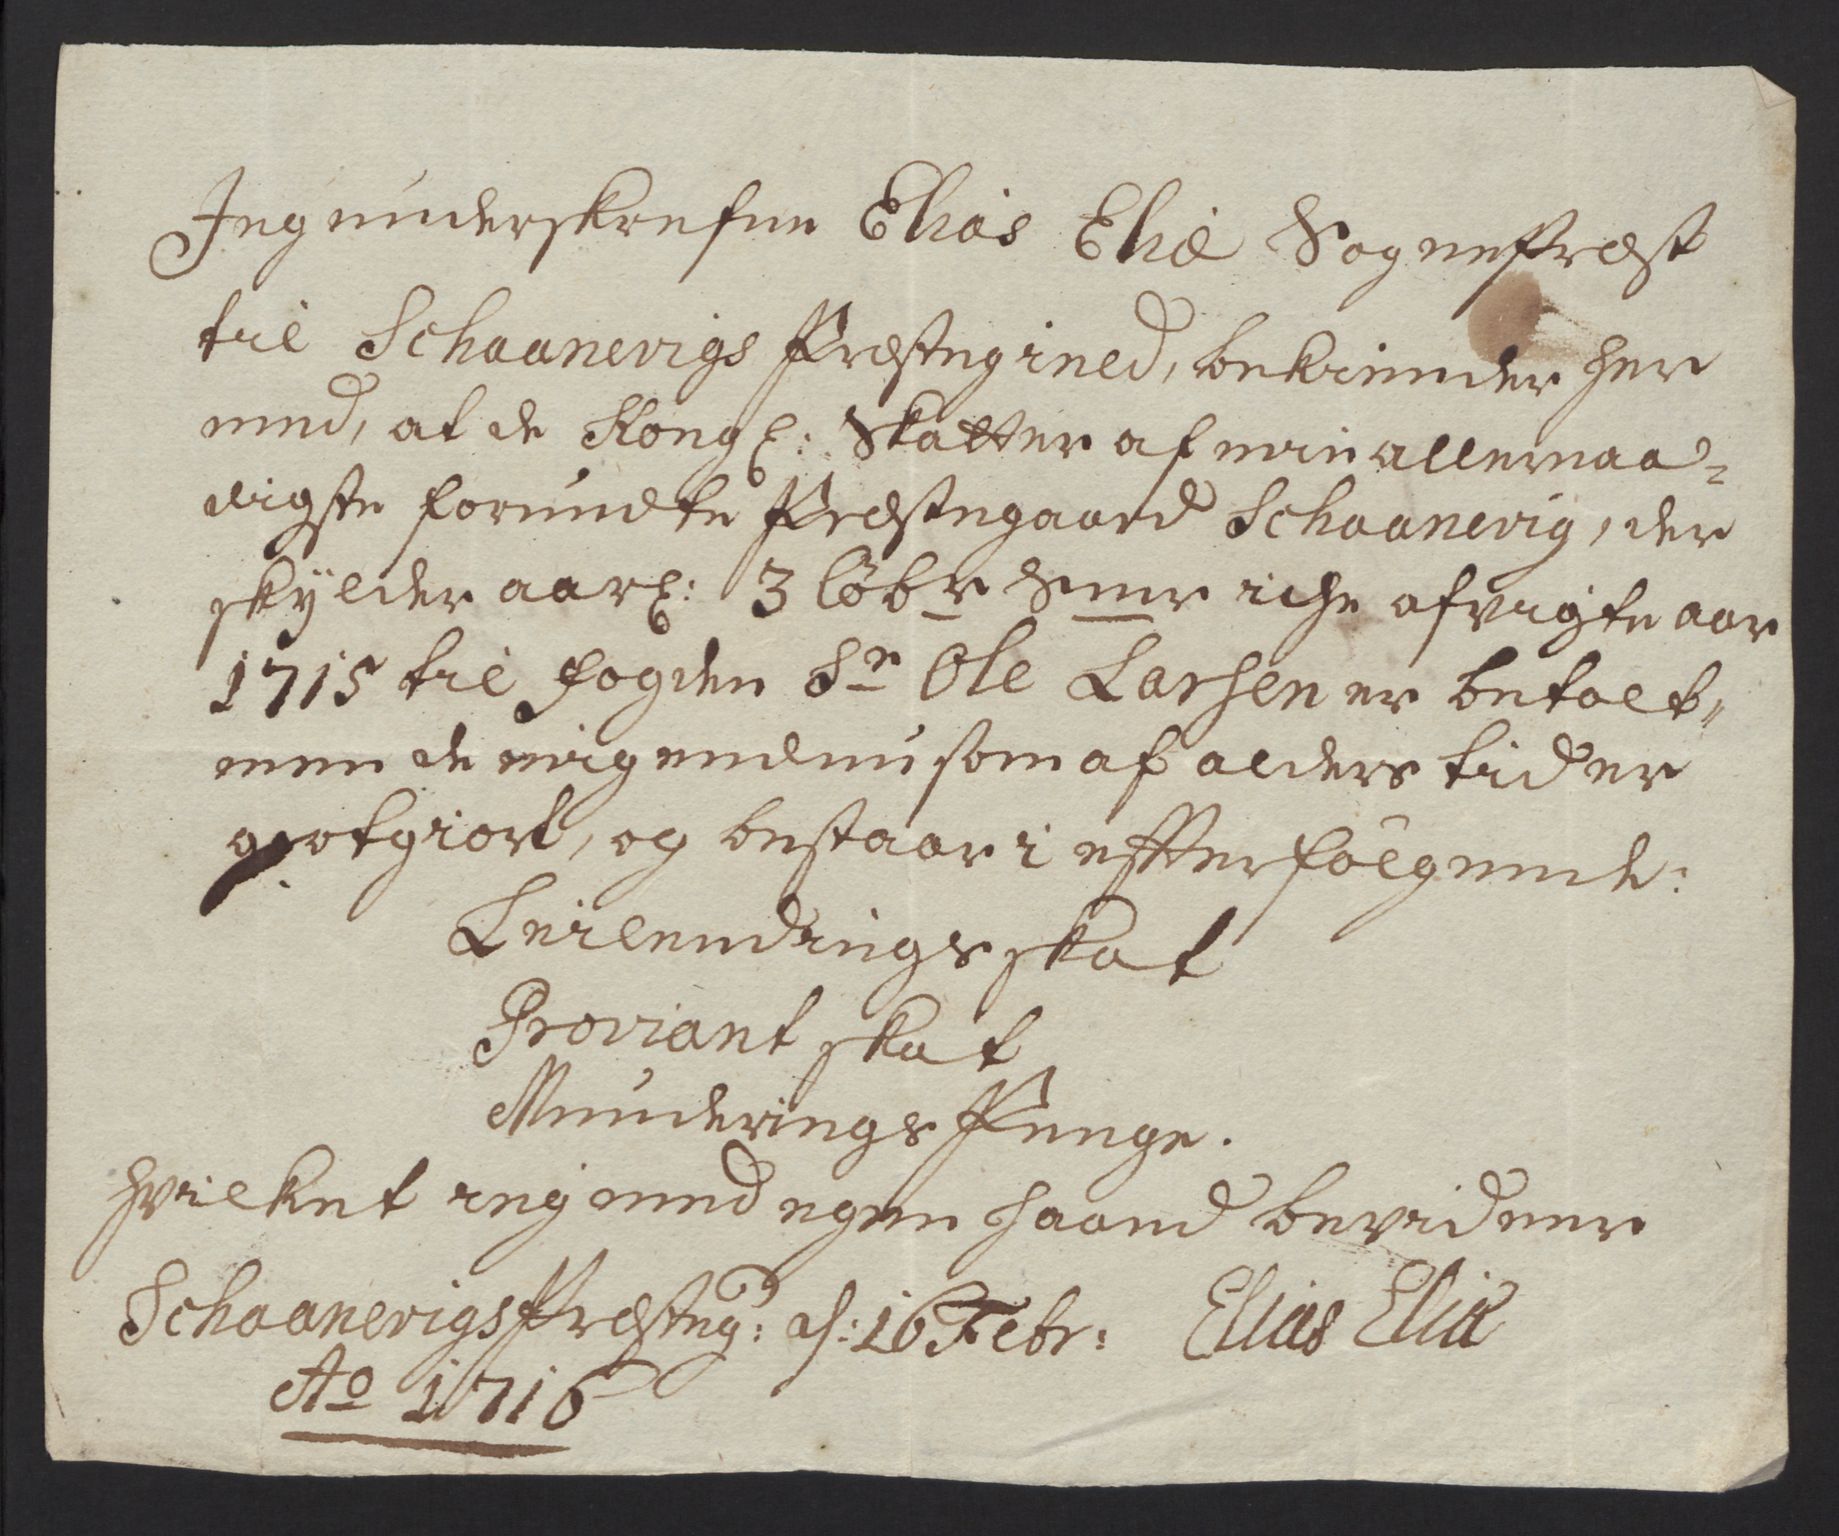 Jeg underskrefne Elias Eliæ Sognepræst
til Schaanevigs Præstegield, bekiender her
med, at de Kongl: Skatter af min allernaa-
digste forundte Præstegaard Schaanevig, der
skÿlder aarl: 3 löb Smör iche afvigte aar
1715 til fogden Sr Ole Larsen er betalt,
men de mig endnu som af alders tid er
gotgiort, og bestaar i effterfölgende:
Leilendings skat
Proviant skat
Munderings Penge.
hvilket ieg med egen haand bevidner
Schaanevigs Præsteg: d: 16 Febr: Elias Eliæ
Ao 1716